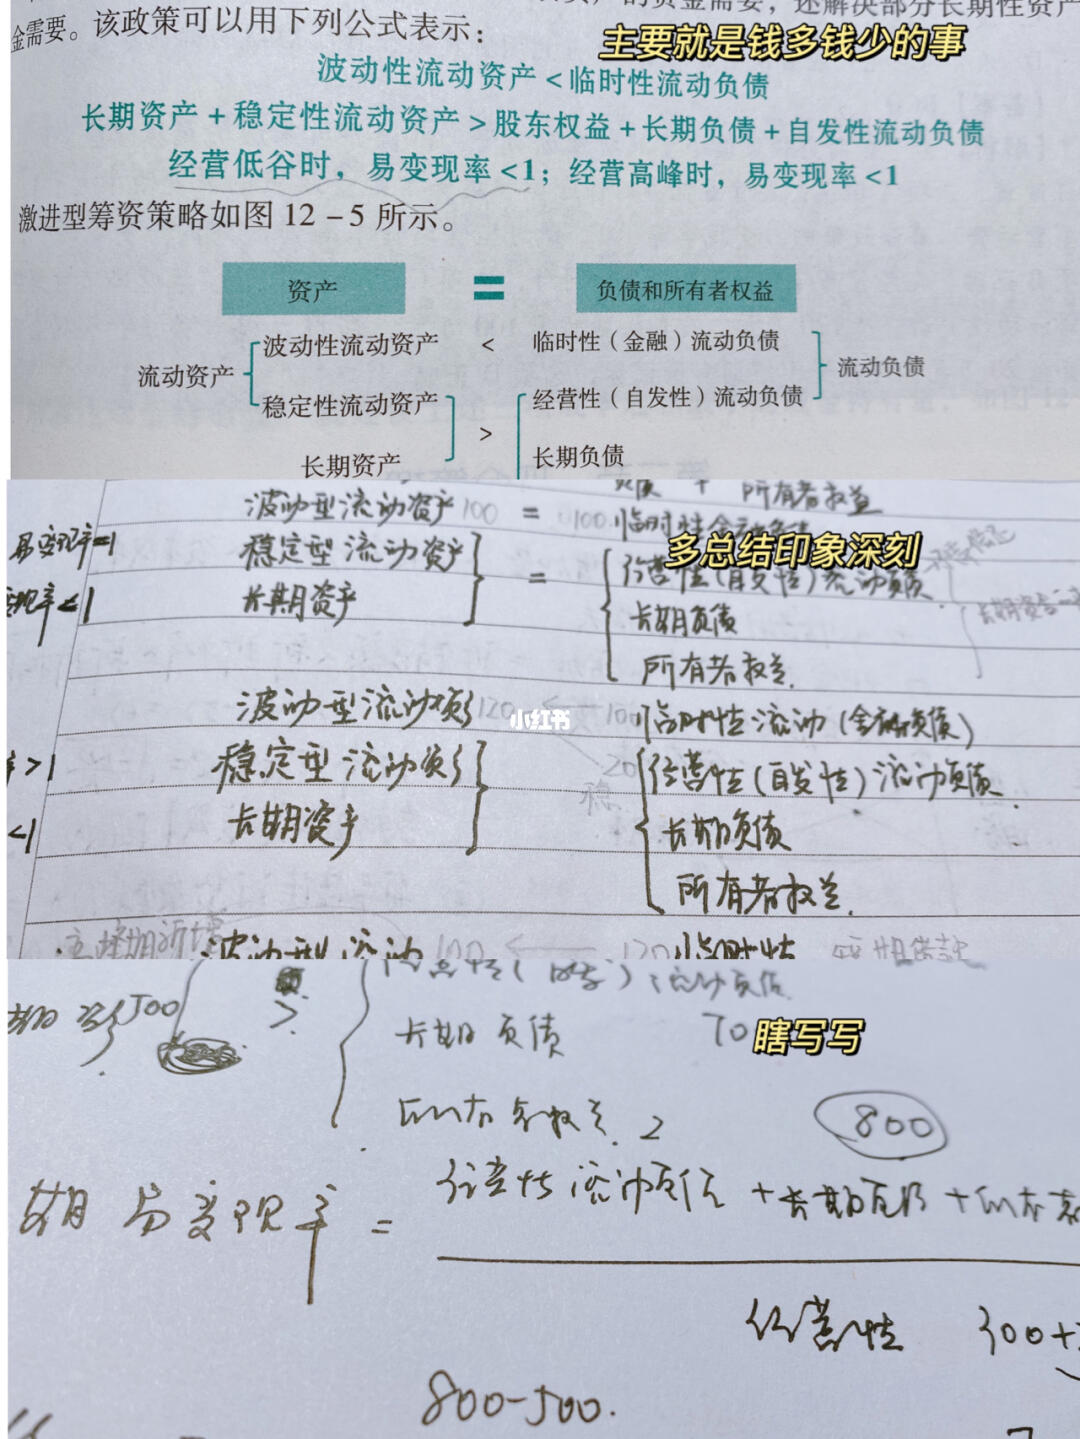 金需要。该政策可以用下列公式表示：
主要就是钱多钱少的事
波动性流动资产＜临时性流动负债
长期资产＋稳定性流动资产＞股东权益＋长期负债＋自发性流动负债
经营低谷时，易变现率＜1；经营高峰时，易变现率＜1
激进型筹资策略如图 12－5 所示。
资产 = 负债和所有者权益
波动性流动资产 ＜ 临时性（金融）流动负债
流动资产 流动负债
稳定性流动资产 经营性（自发性）流动负债
＞
长期资产 长期负债
+ 所有者权益
波动型流动资产 100 = 100 临时性金融负债
易变现率=1 稳定型流动资产
多总结印象深刻
= 经营性(自发性)流动负债
现率<1 长期资产
长期负债
所有者权益
波动型流动资产 120 100 临时性流动(金融负债)
小红书
>1 稳定型流动资产 20 经营性(自发性)流动负债
稳
<1 长期资产 长期负债
所有者权益
波动型流动 100 120 临时性 短期借款
500 > 流动负债
长期负债 70
瞎写写
所有者权益 2
800
期易变现率 = 经营性流动负债 + 长期负债 +
经营性 300+
800-500.